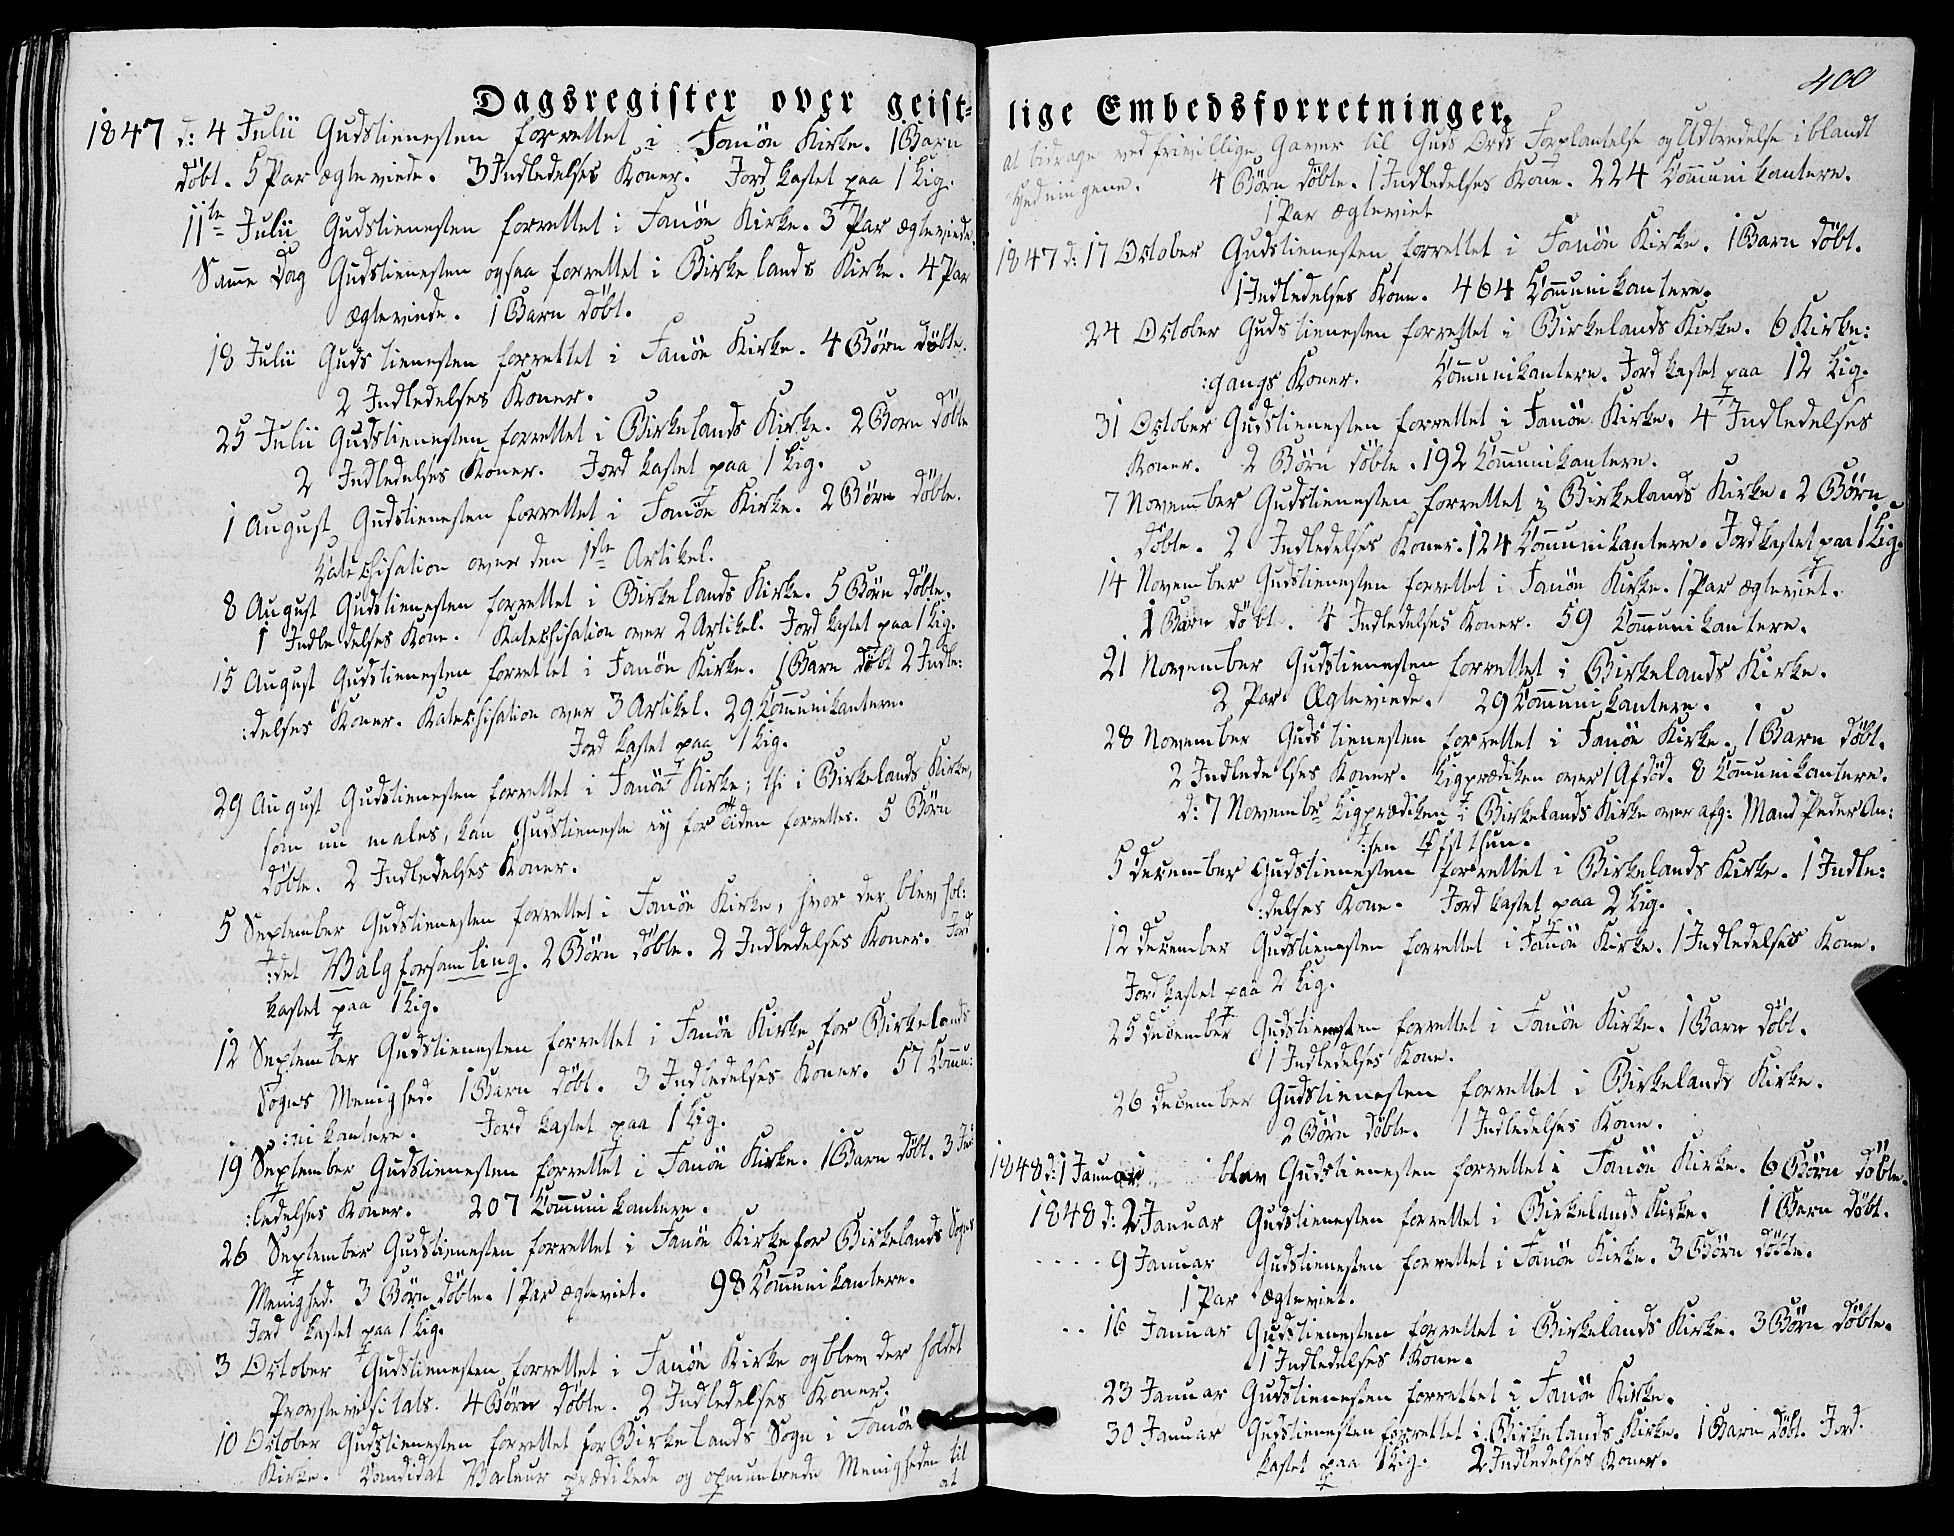 Dagsregister over geist-
1847 d: 4 Julii Gudstienesten forrettet i Fanöe Kirke. 1 Barn
döbt. 5 Par ægteviede. 3 Indledelses Koner. Jord kastet paa 1 Liig.
11te Julii Gudstienesten forrettet i Fanöe Kirke. 3 Par ægteviede.
Samme Dag Gudstienesten ogsaa forrettet i Birkelands Kirke. 4 Par
Ægteviede. 1 Barn döbt.
18 Julii Gudstienesten forrettet i Fanöe Kirke. 4 Börn döbte.
2 Indledelses Koner.
25 Julii Gudstienesten forrettet i Birkelands Kirke. 2 Börn döbte
2 Indledelses Koner. Jord kastet paa 1 Lig.
1 August Gudstienesten forrettet i Fanöe Kirke. 2 Börn döbte.
Catechisation over den 1ste Artikel.
8 August Gudstienesten forrettet i Birkelands Kirke. 5 Börn döbte.
1 Indledelses Kone. Katechisation over 2 Artikel. Jord kastet paa 1 Lig.
15 August Gudstienesten forrettet i Fanöe Kirke. 1 Barn döbt 2 Indle:
:delses Koner. Katechisation over 3 Artikel. 29 Communikantere.
Jord kastet paa 1 Lig.
29 August Gudstienesten forrettet i Fanöe Kirke; thi i Birkelands Kirke,
som nu males, kan Gudstieneste ey for Tiden forrettes. 5 Börn
döbte. 2 Indledelses Koner.
5 September Gudstienesten forrettet i Fanöe Kirke, hvor der blev hol:
:det Valgforsamling. 2 Börn döbte. 2 Indledelses Koner. Jord
kastet paa 1 Lig.
12 September Gudstienesten forrettet i Fanöe Kirke for Birkelands
Sogns Menighed. 1 Barn döbt. 3 Indledelses Koner. 57 Commu:
:nikantere. Jord kastet paa 1 Lig.
19 September Gudstienesten forrettet i Fanöe Kirke. 1 Barn döbt. 3 Ind
:ledelses Koner. 207 Communikantere.
26 September Gudstienesten forrettet i Fanöe Kirke for Birkelands Sogns
Menighed. 3 Börn döbte. 1 Par ægteviet. 98 Communikantere.
Jord kastet paa 1 Lig.
3 October Gudstienesten forrettet i Fanöe Kirke og blev der holdet
Provstevisitats. 4 Börn döbte. 2 Indledelses Koner.
10 October Gudstienesten forrettet for Birkelands Sogn i Fanöe
Kirke. Candidat Valeur prædikede og opmuntrede Menigheden til
at
400
lige Embedsforretninger.
at bidrage ved frivillige Gaver til Guds Ords Forplantelse og Udbredelse iblandt
Hedningene. 4 Börn döbte. 1 Indledelses Kone. 224 Communikantere.
1 Par ægteviet
1847 d: 17 October Gudstienesten forrettet i Fanöe Kirke. 1 Barn döbt.
1 Indledelses Kone. 464 Communikantere.
24 October Gudstienesten forrettet i Birkelands Kirke. 6 Kirke:
:gangs Koner. Communikantere. Jord kastet paa 12 Lig.
31 October Gudstienesten forrettet i Fanöe Kirke. 4 Indledelses
Koner. 2 Börn döbte. 192 Communikantere.
7 November Gudstienesten forrettet i Birkelands Kirke. 2 Börn
döbte. 2 Indledelses Koner. 124 Communikantere. Jord kastet paa 1 Lig.
14 November Gudstienesten forrettet i Fanöe Kirke. 1 Par ægteviet.
1 Barn döbt. 4 Indledelses Koner. 59 Communikantere.
21 November Gudstienesten forrettet i Birkelands Kirke.
2 Par Ægteviede. 29 Communikantere.
28 November Gudstienesten forrettet i Fanöe Kirke. 1 Barn döbt.
2 Indledelses Koner. Ligprædiken over 1 Afdöd. 8 Communikantere.
d: 7 Novembr Ligprædiken i Birkelands Kirke over afg: Mand Peder An:
:sen
5 december Gudstienesten forrettet i Birkelands Kirke. 1 Indle:
:delses Kone. Jord kastet paa 2 Lig.
12 december Gudstienesten forrettet i Fanöe Kirke. 1 Indledelses Kone.
Jord kastet paa 2 Lig.
25 december Gudstienesten forrettet i Fanöe Kirke. 1 Barn döbt.
1 Indledelses Kone.
26 december Gudstienesten forrettet i Birkelands Kirke.
2 Börn döbte. 1 Indledelses Kone.
1848 d: 1 Januar blev Gudstienesten forrettet i Fanöe Kirke. 6 Börn döbte.
1848 d: 2 Januar Gudstienesten forrettet i Birkelands Kirke. 1 Barn döbt.
9 Januar Gudstienesten forrettet i Fanöe Kirke. 3 Börn döbte.
1 Par ægteviet.
16 Januar Gudstienesten forrettet i Birkelands Kirke. 3 Börn döbte.
1 Indledelses Kone.
23 Januar Gudstienesten forrettet i Fanöe Kirke.
30 Januar Gudstienesten forrettet i Birkelands Kirke. 1 Barn döbt. Jord
kastet paa 1 Lig. 2 Indledelses Koner.